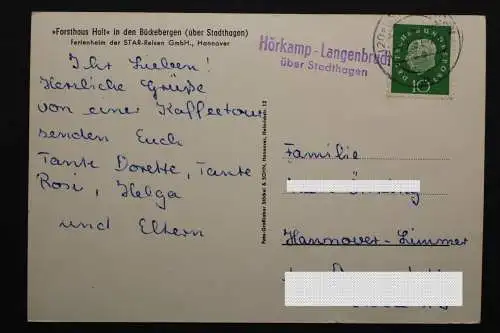 »Forsthaus Halt« in den Bückebergen (über Stadthagen)
Ferienheim der STAR-Reisen GmbH., Hannover
Ihr Lieben!
Herzliche Grüße
von einer Kaffeetour
senden Euch
Tante Dorette, Tante
Rosi, Helga
und Eltern
Foto-Großlabor Möckel & SOHN, Hannover,
Hörkamp-Langenbruch
über Stadthagen
DEUTSCHE BUNDESPOST
10
Familie
Hannover-Limmer